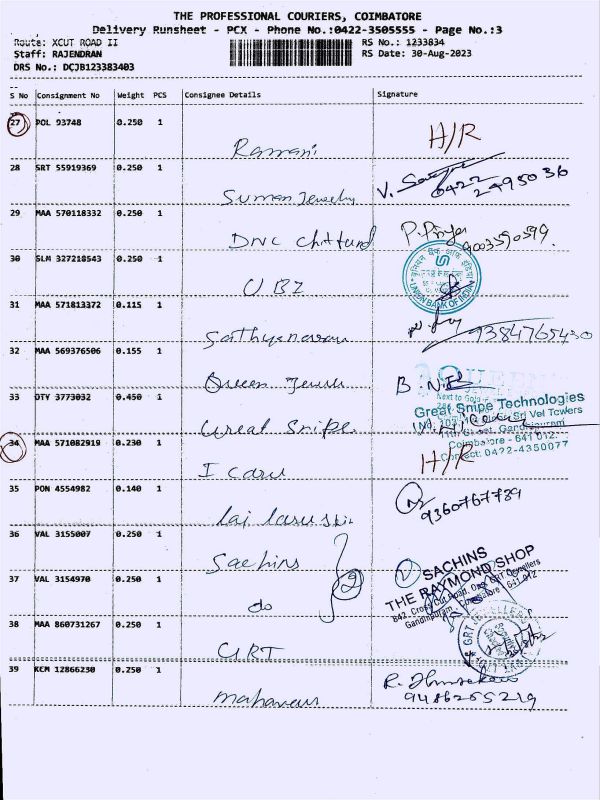 THE PROFESSIONAL COURIERS, COIMBATORE
Delivery Runsheet - PCX - Phone No.:0422-3505555 - Page No.:3
Route: XCUT ROAD II
RS No.: 1233834
Staff: RAJENDRAN
RS Date: 30-Aug-2023
DRS No.: DCJB123383403
S No Consignment No Weight PCS Consignee Details Signature
27 POL 93748 0.250 1
Ramani H/R
28 SRT 55919369 0.250 1
Suman Jewelry V. 0422 2495036
29 MAA 570118332 0.250 1
DNC Chittund P. Priya 9003590599.
30 SLM 327218543 0.250 1
UBI
UNION BANK OF INDIA
31 MAA 571813372 0.115 1
Sathyanarayan 9384765430
32 MAA 569376506 0.155 1
Queen B.
QUEEN
Next to
33 OTY 3773032 0.450 1
Great Snipe
Great Snipe Technologies
Sri Vel Towers
11th Street, Gandhipuram
Coimbatore - 641 012.
Contact: 0422-4350077
34 MAA 571082919 0.230 1
I care H/R
35 PON 4554982 0.140 1
9360767789
36 VAL 3155007 0.250 1
Sachins 2
SACHINS
THE RAYMOND SHOP
842, Cross Cut Road, Opp. GRT Jewellers
Gandhipuram, Coimbatore - 641 012
37 VAL 3154970 0.250 1
do
38 MAA 860731267 0.250 1
GRT
GRT JEWELLERS
39 KCM 12866230 0.250 1
R. 9486265219